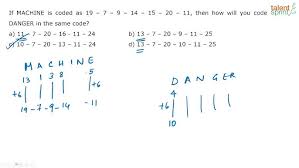 talent
sprint
If MACHINE is coded as 19 – 7 – 9 – 14 – 15 – 20 – 11, then how will you code
DANGER in the same code?
a) 11 – 7 – 20 - 16 - 11 - 24
b) 13 – 7 – 20 – 9 – 11 – 25
c) 10 – 7 – 20 – 13 – 11 – 24
d) 13 – 7 – 20 – 10 – 11 – 25
M A C H I N E
D A N G E R
13 1 3 8 5
4
+6 +6
+6
19 – 7 – 9 – 14 – 11
10